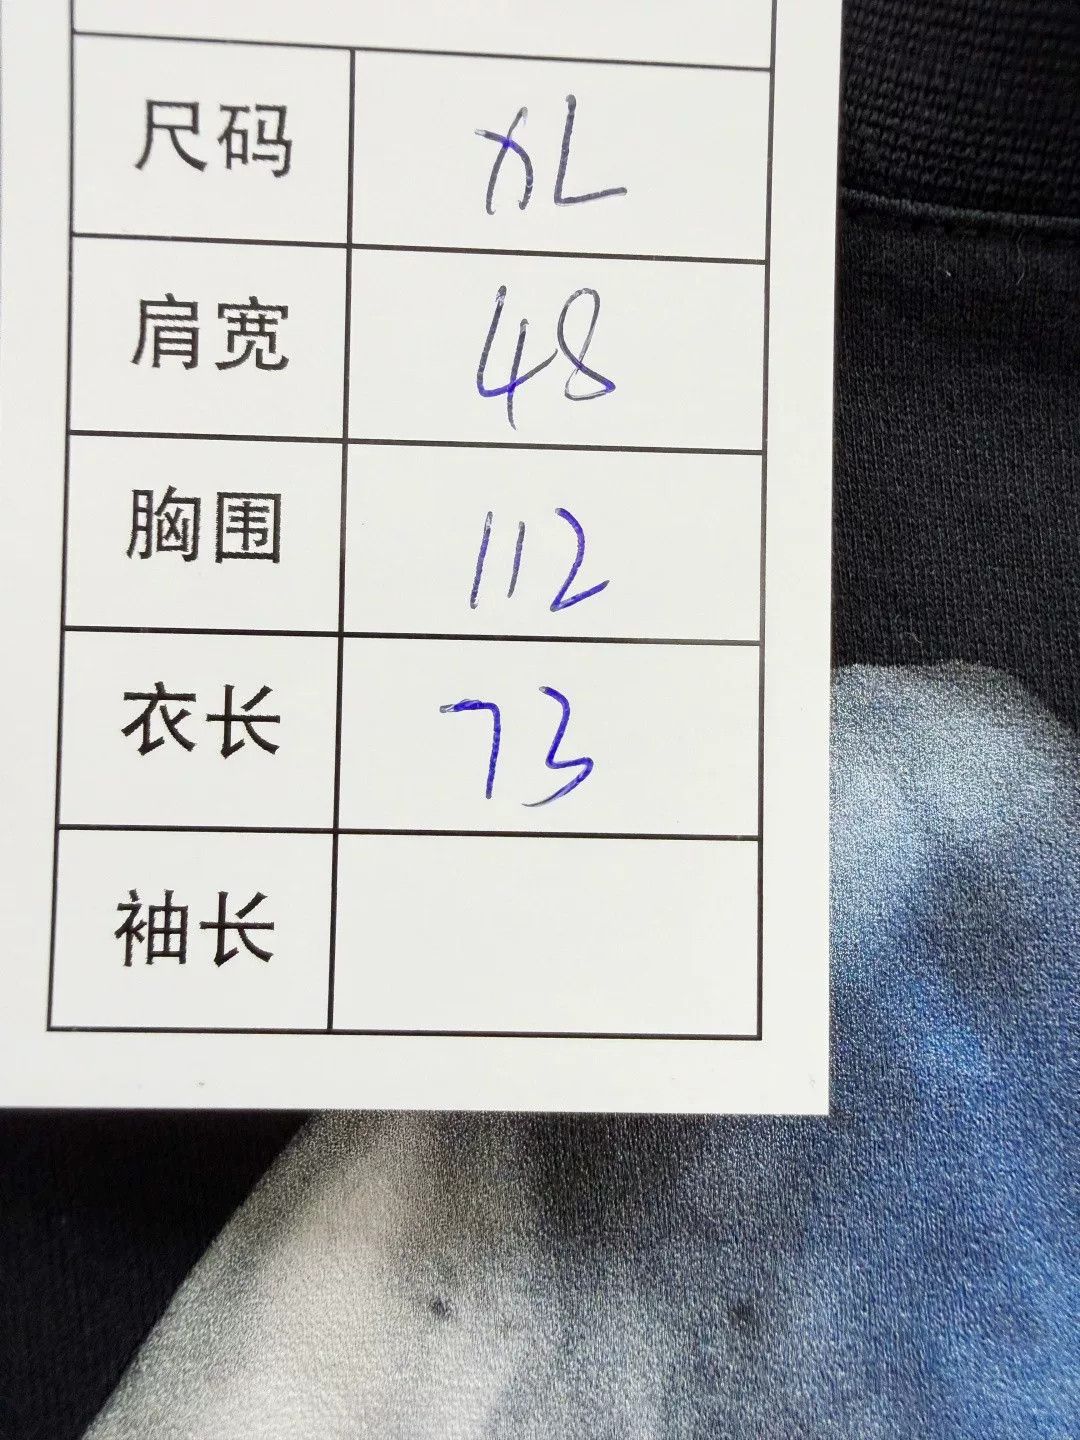 尺码 XL
肩宽 48
胸围 112
衣长 73
袖长